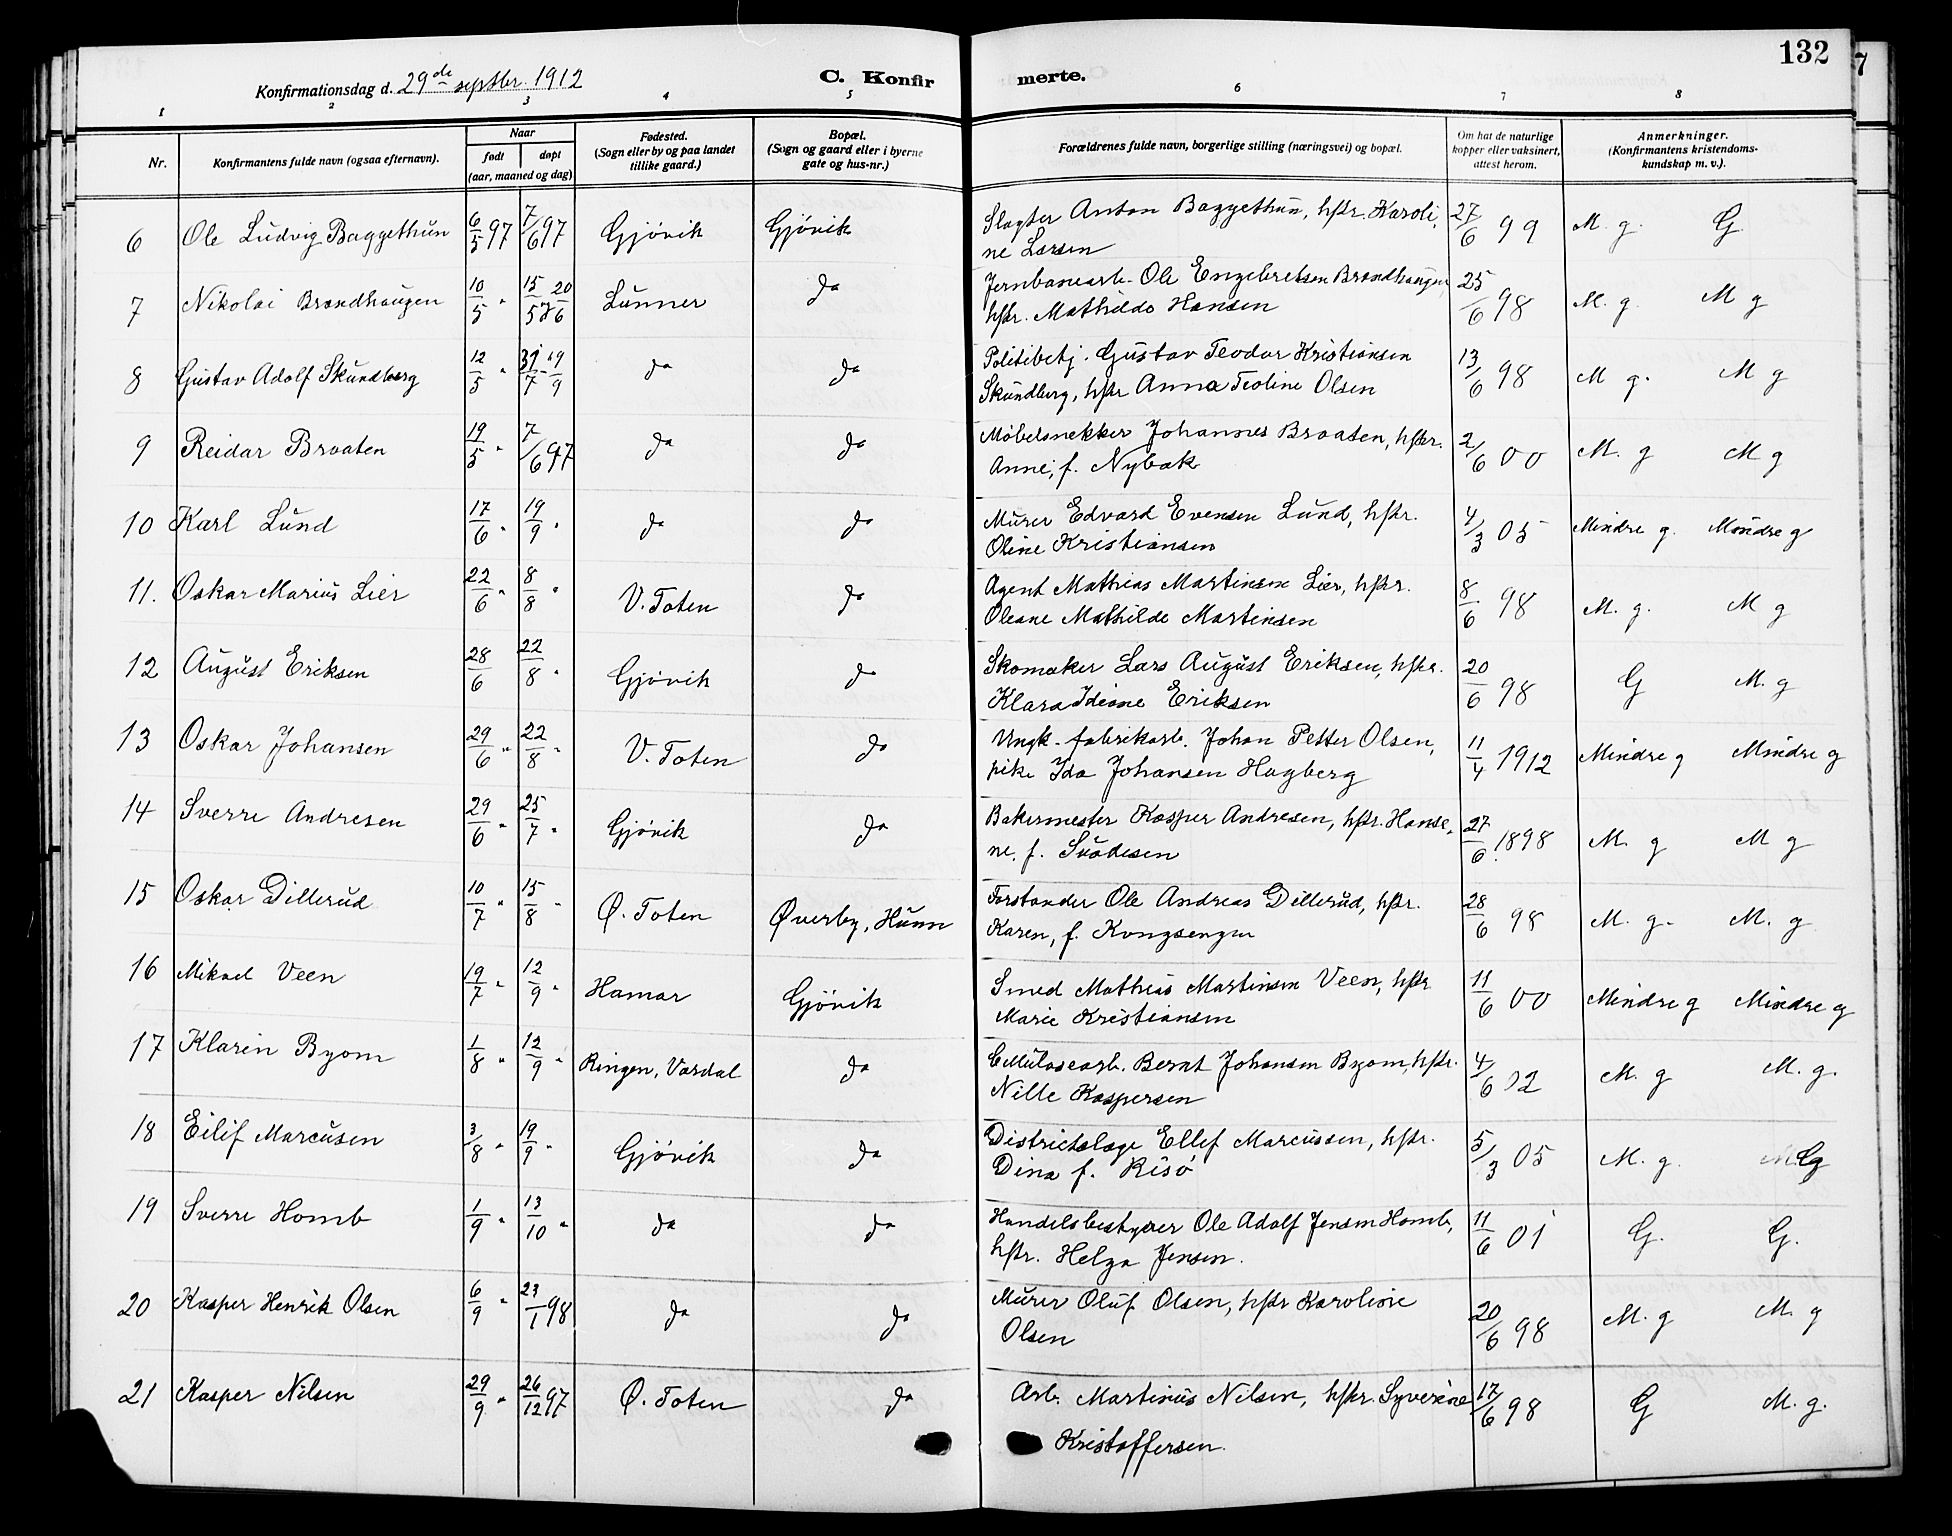 132
7
Konfirmationsdag d. 29de septbr. 1912
C. Konfir
merte.
1 2 3 4 5 6 7 8
Nr.
Konfirmantens fulde navn (ogsaa efternavn).
Naar
født døpt
(aar, maaned og dag)
Fødested.
(Sogn eller by og paa landet
tillike gaard.)
Bopæl.
(Sogn og gaard eller i byerne
gate og hus-nr.)
Forældrenes fulde navn, borgerlige stilling (næringsvei) og bopæl.
Om hat de naturlige
kopper eller vaksinert,
attest herom.
Anmerkninger.
(Konfirmantens kristendoms-
kundskap m. v.).
6 Ole Ludvig Baggethun 6/5 97 7/6 97 Gjövik Gjövik Slagter Anton Baggethun, hstr. Karoli, 27/6 99 M. g. G
ne Larsen
7 Nikolai Brandhaugen 10/5 " 15/5 20/6 Lunner do Jernbanearb. Ole Engebretsen Brandhaugen, 25/6 98 M. g. M g
hstr. Mathilde Hansen
8 Gustav Adolf Skundberg 12/5 " 31/7 - 19/9 do do Politibetj. Gustav Teodor Kristiansen 13/6 98 M g. M g
Skundberg, hstr Anna Teoline Olsen
9 Reidar Braaten 19/5 " 7/6 97 do do Møbelsnekker Johannes Braaten, hstr. 2/6 00 M. g M g
Anne, f. Nybak
10 Karl Lund 17/6 " 19/9 " do do Murer Edvard Evensen Lund, hstr. 4/3 05 Mindre g. Mindre g
Oline Kristiansen
11. Oskar Marius Lier 22/6 " 8/8 " V. Toten do Agent Mathias Martinsen Lier, hstr. 8/6 98 M. g. M g
Oleane Mathilde Martinsen
12 August Eriksen 28/6 22/8 " Gjövik do Skomaker Lars August Eriksen, hstr. 20/6 98 G M. g
Klara Eriksen
13 Oskar Johansen 29/6 " 22/8 " V. Toten do Ungk. fabrikarb. Johan Petter Olsen, 11/4 1912 Mindre g Mindre g
pike Ida Johansen Hagberg
14 Sverre Andresen 29/6 " 25/7 " Gjövik do Bakermester Kasper Andresen, hstr. Hanse, 27/6 1898 M. g M g
ne, f.
15 Oskar Dillerud 10/7 " 15/8 " Ø. Toten Øverby, Hunn Forstander Ole Andreas Dillerud, hstr. 28/6 98 M. g. M. g
Karen, f. Kongsengen
16 Mikael Veen 19/7 " 12/9 " Hamar Gjövik Smed Mathias Martinsen Veen, hstr 11/6 00 Mindre g Mindre g
Marie Kristiansen
17 Klarin Byom 1/8 " 12/9 " Ringen, Vardal do Cellulosearb. Bernt Johansen Byom, hstr. 4/6 02 M. g M. g.
Nille Kaspersen
18 Eilif Marcusen 3/8 " 19/9 " Gjövik do Districtslæge Ellef Marcussen, hstr. 5/3 05 M. g. G
Dina f. Risö
19 Sverre Homb 1/9 " 13/10 " do do Handelsbestyrer Ole Adolf Jensen Homb, 11/6 01 G. G.
hstr. Helga Jensen.
20 Kasper Henrik Olsen 6/9 " 23/1 98 do do Murer Oluf Olsen, hstr Karoline 20/6 98 M. g M. g
Olsen
21 Kasper Nilsen 29/9 " 26/12 97 Ø. Toten do Arb. Martinius Nilsen, hstr. Syverine 17/6 98 G M. g.
Kristoffersen.